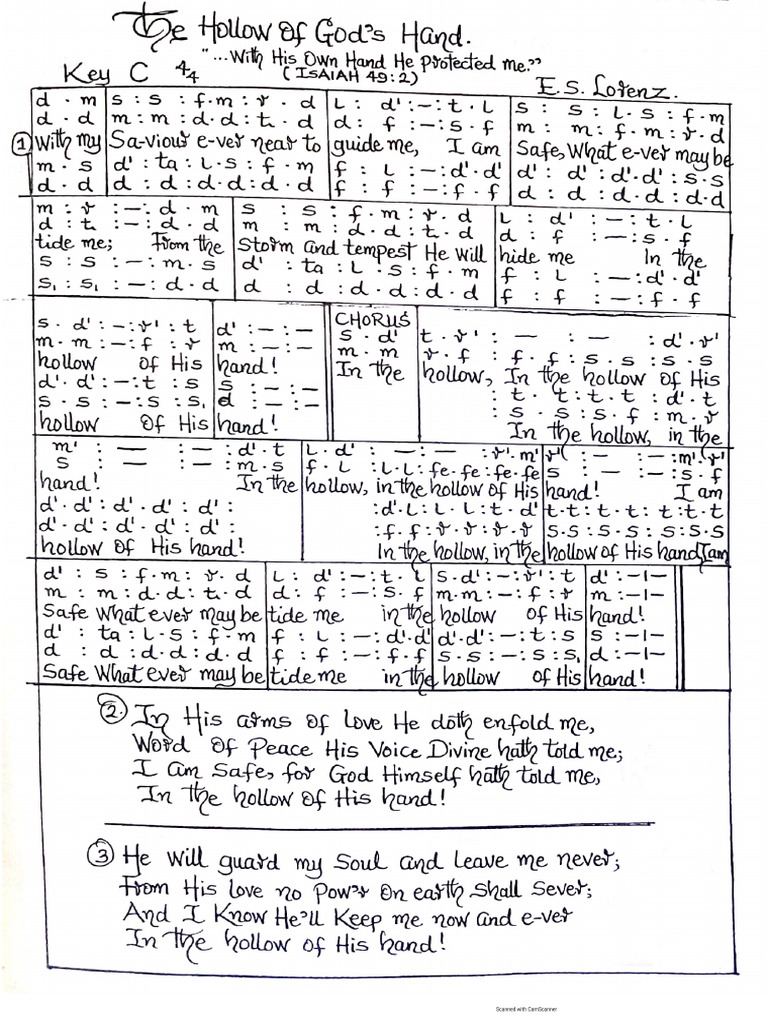 The Hollow Of God's Hand.
"...With His Own Hand He Protected me."
(ISAIAH 49:2)
Key C 4/4
E.S. Lorenz.
d . m | s : s : f . m : r . d | l : d' : - : t . l | s : s : l . s : f . m
d . d | m : m : d . d : t . d | d : f : - : s . f | m : m : f . m : r . d
① With my | Sa-viour e-ver near to | guide me, I am | Safe, What e-ver may be
m . s | d' : ta : l . s : f . m | f : l : - : d' . d' | d' : d' : d' . d' : s . s
d . d | d : d : d . d : d . d | f : f : - : f . f | d : d : d . d : d . d
m : r : - : d . m | s : s : f . m : r . d | l : d' : - : t . l
d : t. : - : d . d | m : m : d . d : t . d | d : f : - : s . f
tide me; From the | Storm and tempest He will | hide me In the
s : s : - : m . s | d' : ta : l . s : f . m | f : l : - : d' . d'
s₁ : s₁ : - : d . d | d : d : d . d : d . d | f : f : - : f . f
CHORUS
s . d' : - : r' : t | d' : - : - | s . d' | t . r' : - : - : d' . r'
m . m : - : f : r | m : - : - | m . m | r . f : f . f : s . s : s . s
hollow of His | hand! | In the | hollow, In the hollow of His
d' . d' : - : t : s | s : - : - | : t . t : t . t : d' . t
s . s : - : s : s₁ | d : - : - | : s . s : s . f : m . r
hollow of His | hand! | In the hollow, in the
m' : - : - : d' . t | l . d' : - : - : r' . m' | r' : - : - : m' . r'
s : - : - : m . s | f . l : l . l : fe . fe : fe . fe | s : - : - : s . f
hand! In the | hollow, in the hollow of His | hand! I am
d' . d' : d' . d' : d' : | : d' . l : l . l : t . d' | t . t : t . t : t . t : t . t
d' . d' : d' . d' : d' : | : f . f : r . r : r . r | s . s : s . s : s . s : s . s
hollow of His hand! | In the hollow, in the | hollow of His hand, I am
d' : s : f . m : r . d | l : d' : - : t . l | s . d' : - : r' : t | d' : - | -
m : m : d . d : t . d | d : f : - : s . f | m . m : - : f : r | m : - | -
Safe What ever may be | tide me in the | hollow of His | hand!
d' : ta : l . s : f . m | f : l : - : d' . d' | d' . d' : - : t : s | s : - | -
d : d : d . d : d . d | f : f : - : f . f | s . s : - : s : s₁ | d : - | -
Safe What ever may be | tide me in the | hollow of His | hand!
② In His arms of love He doth enfold me,
Word Of Peace His Voice Divine hath told me;
I am Safe, for God Himself hath told me,
In the hollow of His hand!
③ He will guard my Soul and Leave me never;
From His love no Pow'r on earth Shall Sever;
And I Know He'll Keep me now and e-ver
In The hollow of His hand!
Scanned with CamScanner